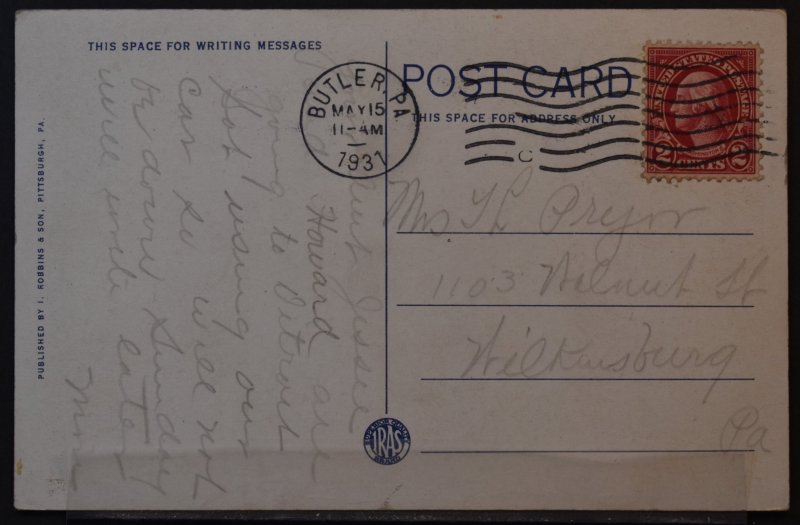 THIS SPACE FOR WRITING MESSAGES
Jessie
Howard are
going to Detroit
Sat using our
car so will not
be down Sunday
will write later
PUBLISHED BY I. ROBBINS & SON, PITTSBURGH, PA.
BUTLER, PA.
MAY 15
11-AM
1931
POST CARD
THIS SPACE FOR ADDRESS ONLY
C
UNITED STATES POSTAGE
2 CENTS 2
Pryor
1103 Walnut St
Wilkinsburg
Pa
IRAS